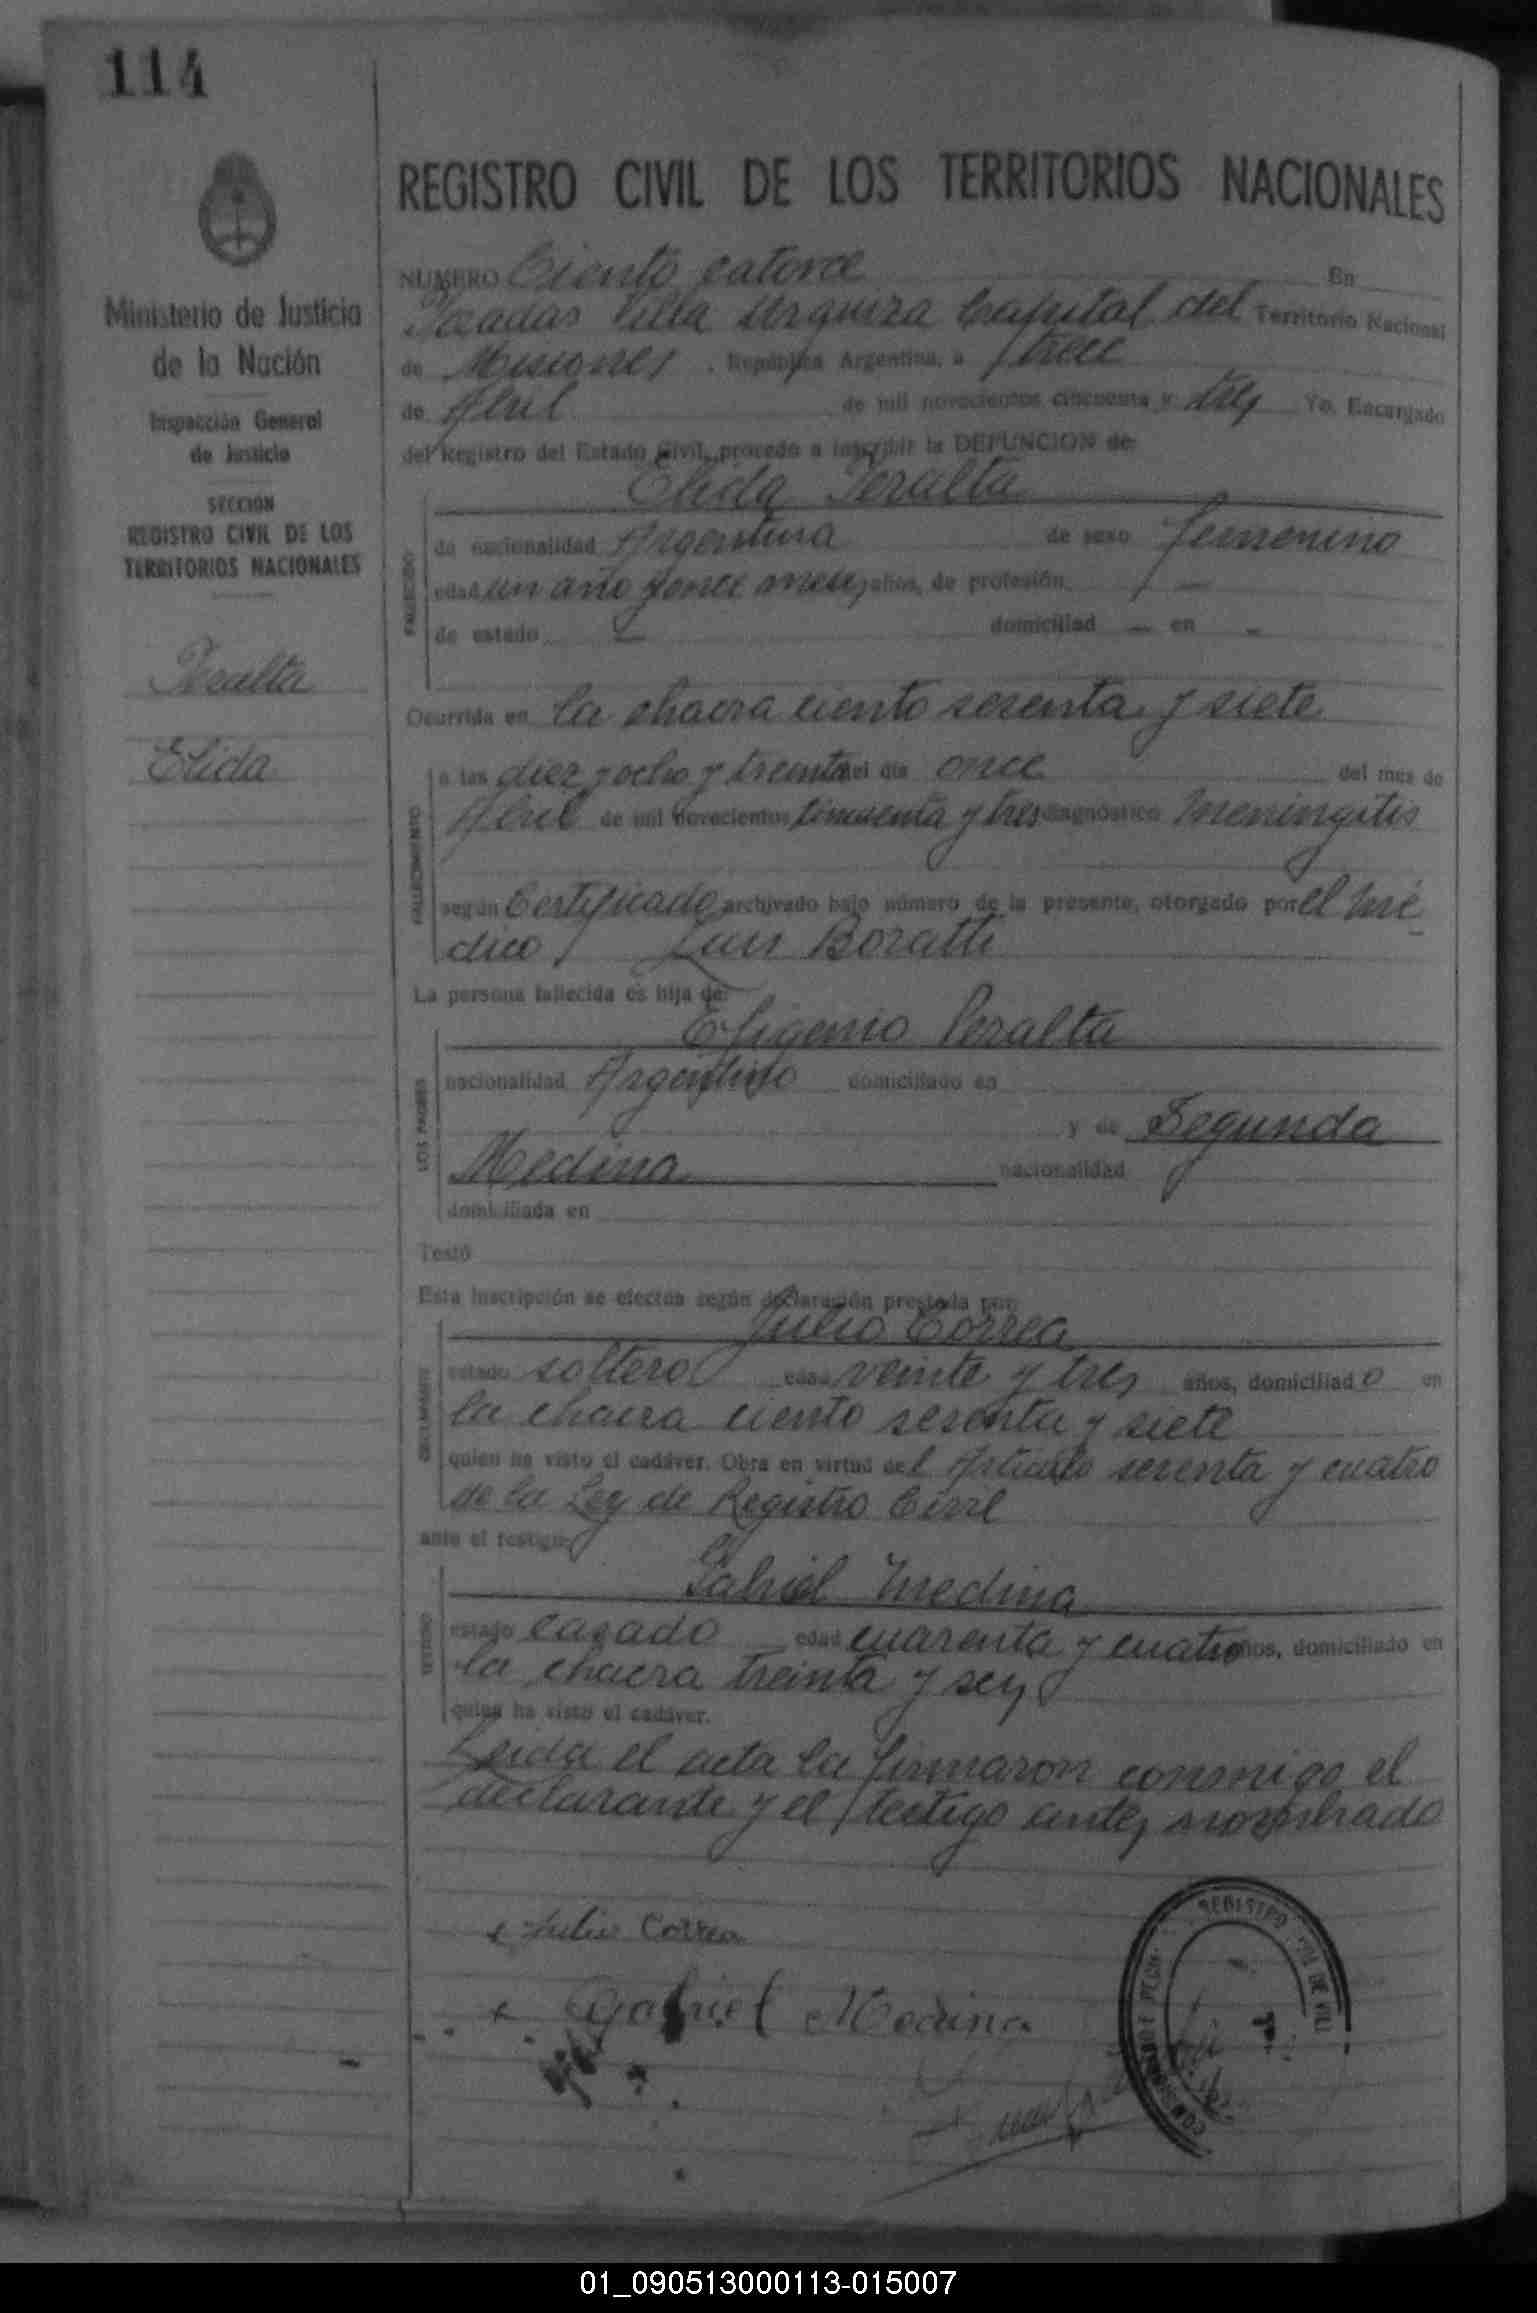 114
REGISTRO CIVIL DE LOS TERRITORIOS NACIONALES
Ministerio de Justicia
de la Nación
Inspección General
de Justicia
SECCION
REGISTRO CIVIL DE LOS
TERRITORIOS NACIONALES
Peralta
Elida
NUMERO Ciento catorce En
Posadas Villa Urquiza Capital del Territorio Nacional
de Misiones, República Argentina, a trece
de Abril de mil novecientos cincuenta y tres Yo, Encargado
del Registro del Estado Civil, procedo a inscribir la DEFUNCION de:
Elida Peralta
FALLECIDO
de nacionalidad Argentina de sexo femenino
edad un año y once meses años, de profesión —
de estado — domiciliad — en —
Ocurrida en la chacra ciento sesenta y siete
FALLECIMIENTO
a las diez y ocho y treinta del día once del mes de
Abril de mil novecientos cincuenta y tres diagnóstico Meningitis
según Certificado archivado bajo número de la presente, otorgado por el mé-
dico Luis Boratti
La persona fallecida es hija de:
Efigenio Peralta
LOS PADRES
nacionalidad Argentino domiciliado en
y de Segunda
Medina nacionalidad
domiciliada en
Testó
Esta inscripción se efectúa según declaración prestada por:
Julio Correa
DECLARANTE
estado soltero edad veinte y tres años, domiciliado en
la chacra ciento sesenta y siete
quien ha visto el cadáver. Obra en virtud del Artículo sesenta y cuatro
de la Ley de Registro Civil
ante el testigo:
Gabriel Medina
TESTIGO
estado casado edad cuarenta y cuatro años, domiciliado en
la chacra treinta y seis
quien ha visto el cadáver.
Leida el acta la firmaron conmigo el
declarante y el testigo antes nombrado
Julio Correa
Gabriel Medina
REGISTRO
01_090513000113-015007